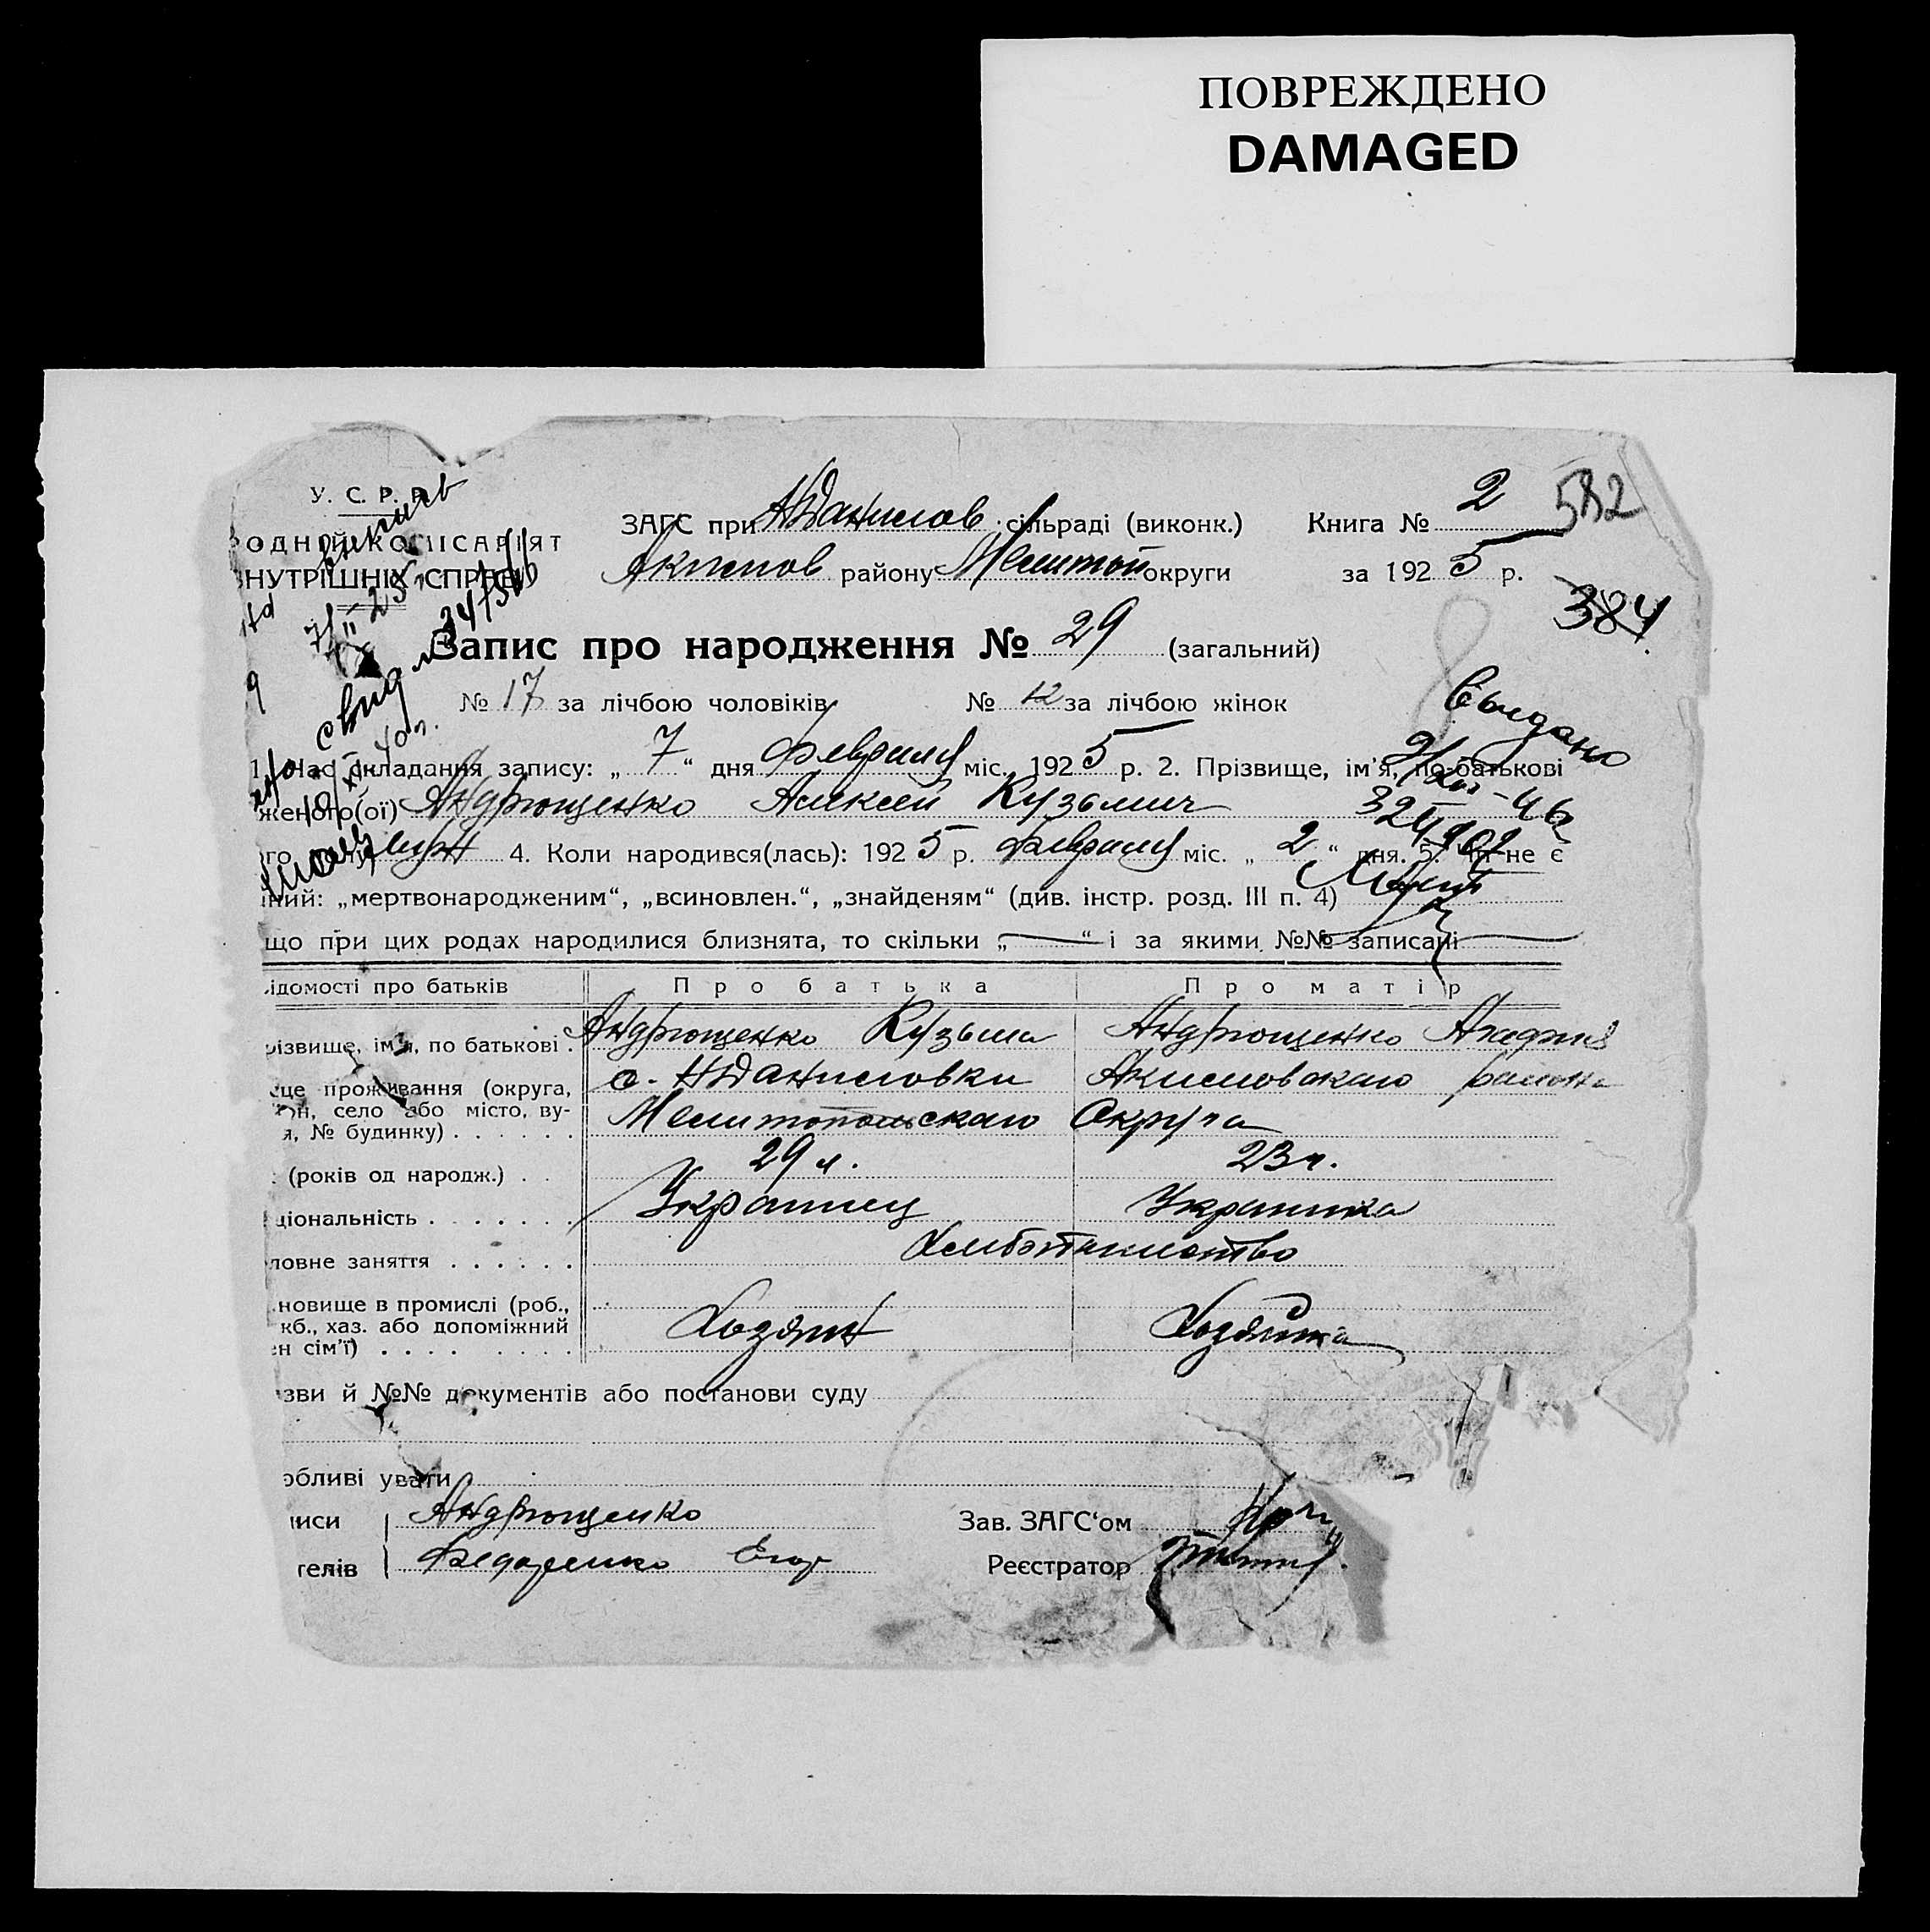 ПОВРЕЖДЕНО
DAMAGED
У. С. Р. Р.
ОДНИЙ КОМІСАРІЯТ
НУТРІШНІХ СПРАВ
ЗАГС при Н Данилов сільраді (виконк.) Книга № 2 582
Акимов району Мелитоп округи за 1925 р.
384
Запис про народження № 29 (загальний)
№ 17 за лічбою чоловіків № 12 за лічбою жінок
Выдано
1. Час складання запису: „ 7 “ дня февраля міс. 1925 р. 2. Прізвище, ім'я, по-батькові
женого(ої) Андрющенко Алексей Кузьмич
го 4. Коли народився(лась): 1925 р. февраля міс. „ 2 “ дня. 5. Чи не є
ний: „мертвонародженим“, „всиновлен.“, „знайденям“ (див. інстр. розд. III п. 4)
що при цих родах народилися близнята, то скільки „ — “ і за якими №№ записані —
ідомості про батьків Про батька Про матір
різвище, ім'я, по батькові . Андрющенко Кузьма Андрющенко
сце проживання (округа, с. Н Даниловки Акимовского района
он, село або місто, ву-
я, № будинку) . . . . . . Мелитопольского Округа
: (років од народж.) . . 29 л. 23 л.
ціональність . . . . . . . Украинец Украинка
ловне заняття . . . . . . Хлебопашество
новище в промислі (роб.,
кб., хаз. або допоміжний Хозяин Хозяйка
ен сім'ї) . . . . . . . .
зви й №№ документів або постанови суду
обливі уваги
иси Андрющенко Зав. ЗАГС‘ом
телів Федоренко Егор Реєстратор